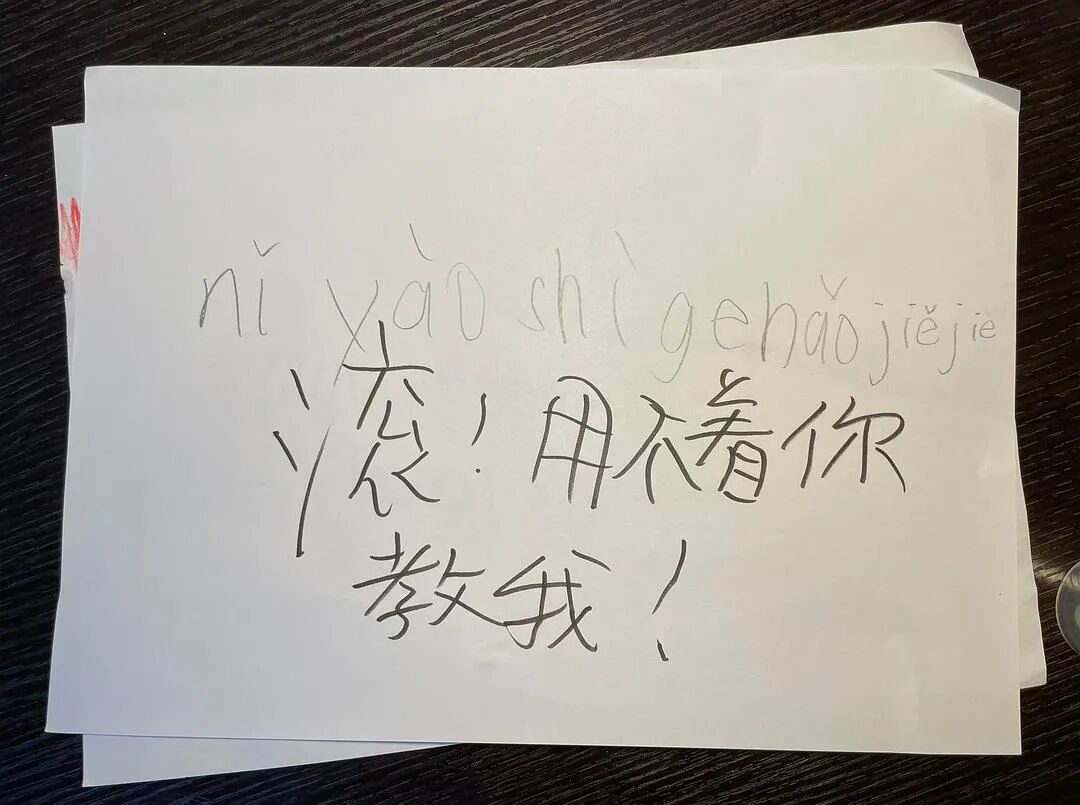 nǐ yào shì gehǎojiějie
滚！用不着你
教我！